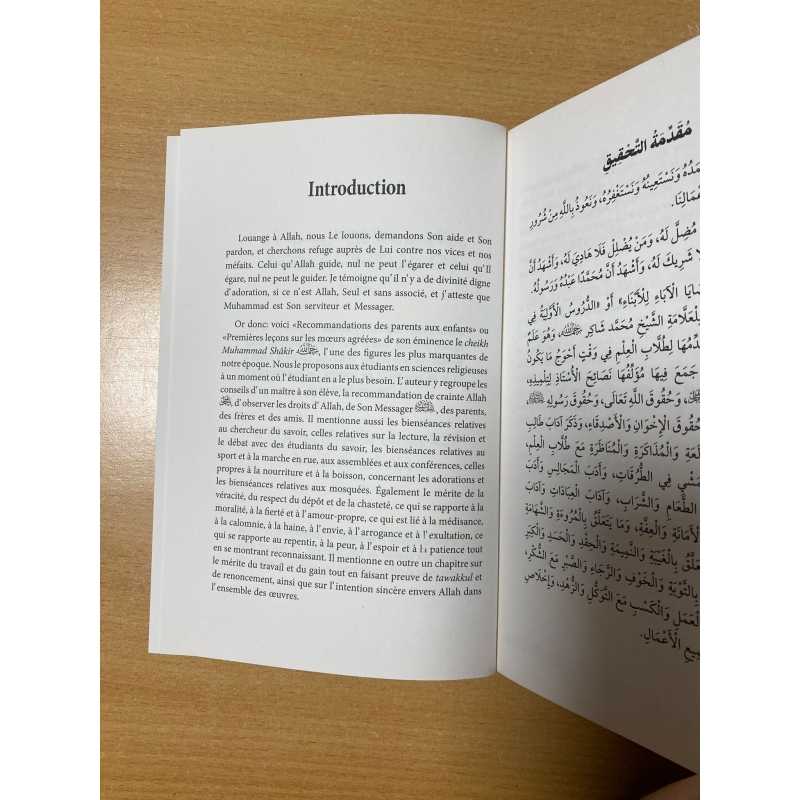 Introduction
Louange à Allah, nous Le louons, demandons Son aide et Son
pardon, et cherchons refuge auprès de Lui contre nos vices et nos
méfaits. Celui qu'Allah guide, nul ne peut l'égarer et celui qu'Il
égare, nul ne peut le guider. Je témoigne qu'il n'y a de divinité digne
d'adoration, si ce n'est Allah, Seul et sans associé, et j'atteste que
Muhammad est Son serviteur et Messager.
Or donc: voici «Recommandations des parents aux enfants» ou
«Premières leçons sur les mœurs agréées» de son éminence le cheikh
Muhammad Shâkir, l'une des figures les plus marquantes de
notre époque. Nous le proposons aux étudiants en sciences religieuses
à un moment où l'étudiant en a le plus besoin. L'auteur y regroupe les
conseils d'un maître à son élève, la recommandation de crainte Allah
ﷻ, d'observer les droits d'Allah, de Son Messager ﷺ, des parents,
des frères et des amis. Il mentionne aussi les bienséances relatives
au chercheur du savoir, celles relatives sur la lecture, la révision et
le débat avec des étudiants du savoir, les bienséances relatives au
sport et à la marche en rue, aux assemblées et aux conférences, celles
propres à la nourriture et à la boisson, concernant les adorations et
les bienséances relatives aux mosquées. Également le mérite de la
véracité, du respect du dépôt et de la chasteté, ce qui se rapporte à la
moralité, à la fierté et à l'amour-propre, ce qui est lié à la médisance,
à la calomnie, à la haine, à l'envie, à l'arrogance et à l'exultation, ce
qui se rapporte au repentir, à la peur, à l'espoir et à la patience tout
en se montrant reconnaissant. Il mentionne en outre un chapitre sur
le mérite du travail et du gain tout en faisant preuve de tawakkul et
de renoncement, ainsi que sur l'intention sincère envers Allah dans
l'ensemble des œuvres.
مُقَدِّمَةُ التَّحْقِيقِ
وَنَسْتَعِينُهُ وَنَسْتَغْفِرُهُ، وَنَعُوذُ بِاللَّهِ مِنْ شُرُورِ
مُضِلَّ لَهُ، وَمَنْ يُضْلِلْ فَلَا هَادِيَ لَهُ، وَأَشْهَدُ أَنْ
شَرِيكَ لَهُ، وَأَشْهَدُ أَنَّ مُحَمَّدًا عَبْدُهُ وَرَسُولُهُ.
الْآبَاءِ لِلْأَبْنَاءِ» أَوْ «الدُّرُوسُ الْأَوَّلِيَّةُ فِي
الشَّيْخِ مُحَمَّد شَاكِر، وَهُوَ عَلَمٌ
لِطُلَّابِ الْعِلْمِ فِي وَقْتٍ أَحْوَجُ مَا يَكُونُ
جَمَعَ فِيهَا مُؤَلِّفُهَا نَصَائِحَ الْأُسْتَاذِ لِتِلْمِيذِهِ،
وَحُقُوقِ اللَّهِ تَعَالَى، وَحُقُوقِ رَسُولِهِ ﷺ،
وَحُقُوقِ الْإِخْوَانِ وَالْأَصْدِقَاءِ، وَذَكَرَ آدَابَ طَالِبِ
وَالْمُذَاكَرَةِ وَالْمُنَاظَرَةِ مَعَ طُلَّابِ الْعِلْمِ،
فِي الطُّرُقَاتِ، وَأَدَبَ الْمَجَالِسِ وَأَدَبَ
الطَّعَامِ وَالشَّرَابِ، وَآدَابَ الْعِبَادَاتِ وَآدَابَ
وَالْعِفَّةِ، وَمَا يَتَعَلَّقُ بِالْمُرُوءَةِ وَالشَّهَامَةِ
بِالْغِيبَةِ وَالنَّمِيمَةِ وَالْحِقْدِ وَالْحَسَدِ وَالْكِبْرِ
بِالتَّوْبَةِ وَالْخَوْفِ وَالرَّجَاءِ وَالصَّبْرِ مَعَ الشُّكْرِ،
وَالْكَسْبِ مَعَ التَّوَكُّلِ وَالزُّهْدِ، وَإِخْلَاصِ
الْأَعْمَالِ.